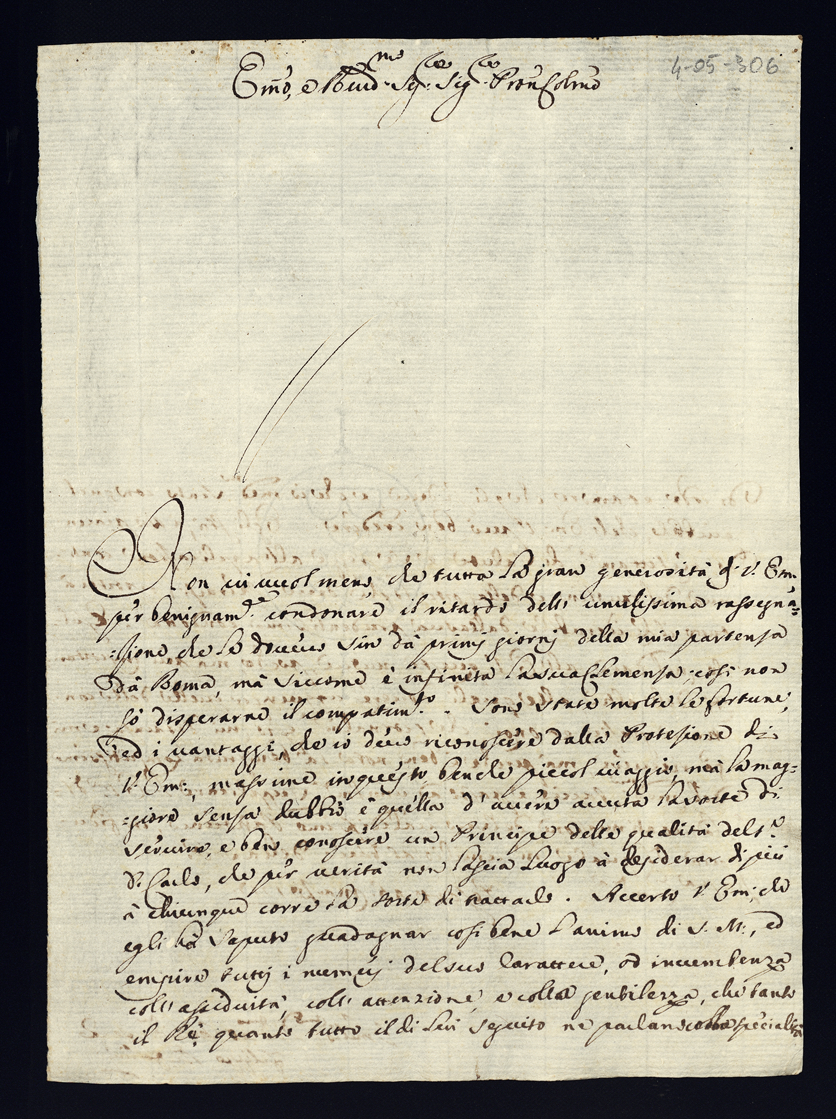 4-05-306
Emo, e Rmo Sig.re Sig.re Pron Colmo
Non ci vuol meno che tutta la gran generosità di V. Em.
per benignam.te condonare il ritardo dell' umilissima rassegna=
=zione che le dovevo sin dà primj giorni della mia partenza
dà Roma, mà siccome è infinita la sua Clemenza cosi non
sò disperarne il compatim.to. Sono state molte le fortune,
ed i vantaggi, che io devo riconoscere dalla Protezione di
V. Em:, massime in questo benche piccol viaggio, mà la mag=
=giore senza dubbio è quella d'avere avuta la sorte di
servire, e ben conoscere un Principe delle qualità dell'
D. Carlo, che per verità non lascia luogo à desiderar di più
à chiunque corre la sorte di trattarlo. Accerto V. Em: che
egli hà saputo guadagnar cosi bene l'animo di S. M:, ed
empire tuttj i numerj del suo Carattere, ed incumbenza
coll' assiduità, coll' attenzione, e colla gentilezza, che tanto
il Rè, quanto tutto il di Lui seguito ne parlano colla special